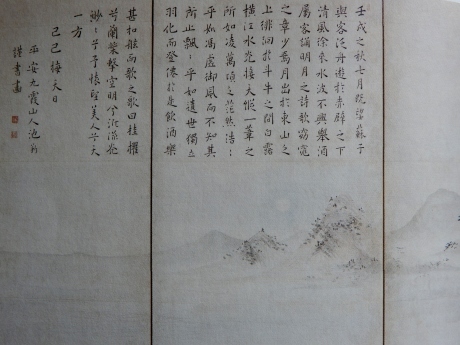 壬戌之秋七月既望蘇子
與客泛舟遊於赤壁之下
清風徐來水波不興舉酒
屬客誦明月之詩歌窈窕
之章少焉月出於東山之
上徘徊於斗牛之間白露
横江水光接天縱一葦之
所如凌萬頃之茫然浩〻
乎如馮虚御風而不知其
所止飄〻乎如遺世獨立
羽化而登僊於是飲酒樂
甚扣舷而歌之歌曰桂櫂
兮蘭槳擊空明兮泝流光
渺〻兮予懷望美人兮天
一方
己巳梅天日
平安九霞山人池
謹書畫